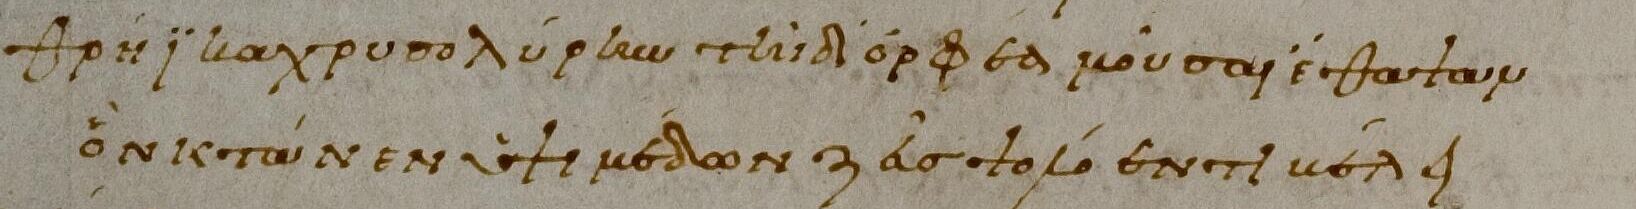 θρήϊκα χρυσολύρην τῆιδ' ὀρφέα μοῦσαι ἔθαψαν
ὃν κτάνεν ὑψιμέδων ζεὺς ψολόεντι βέλει